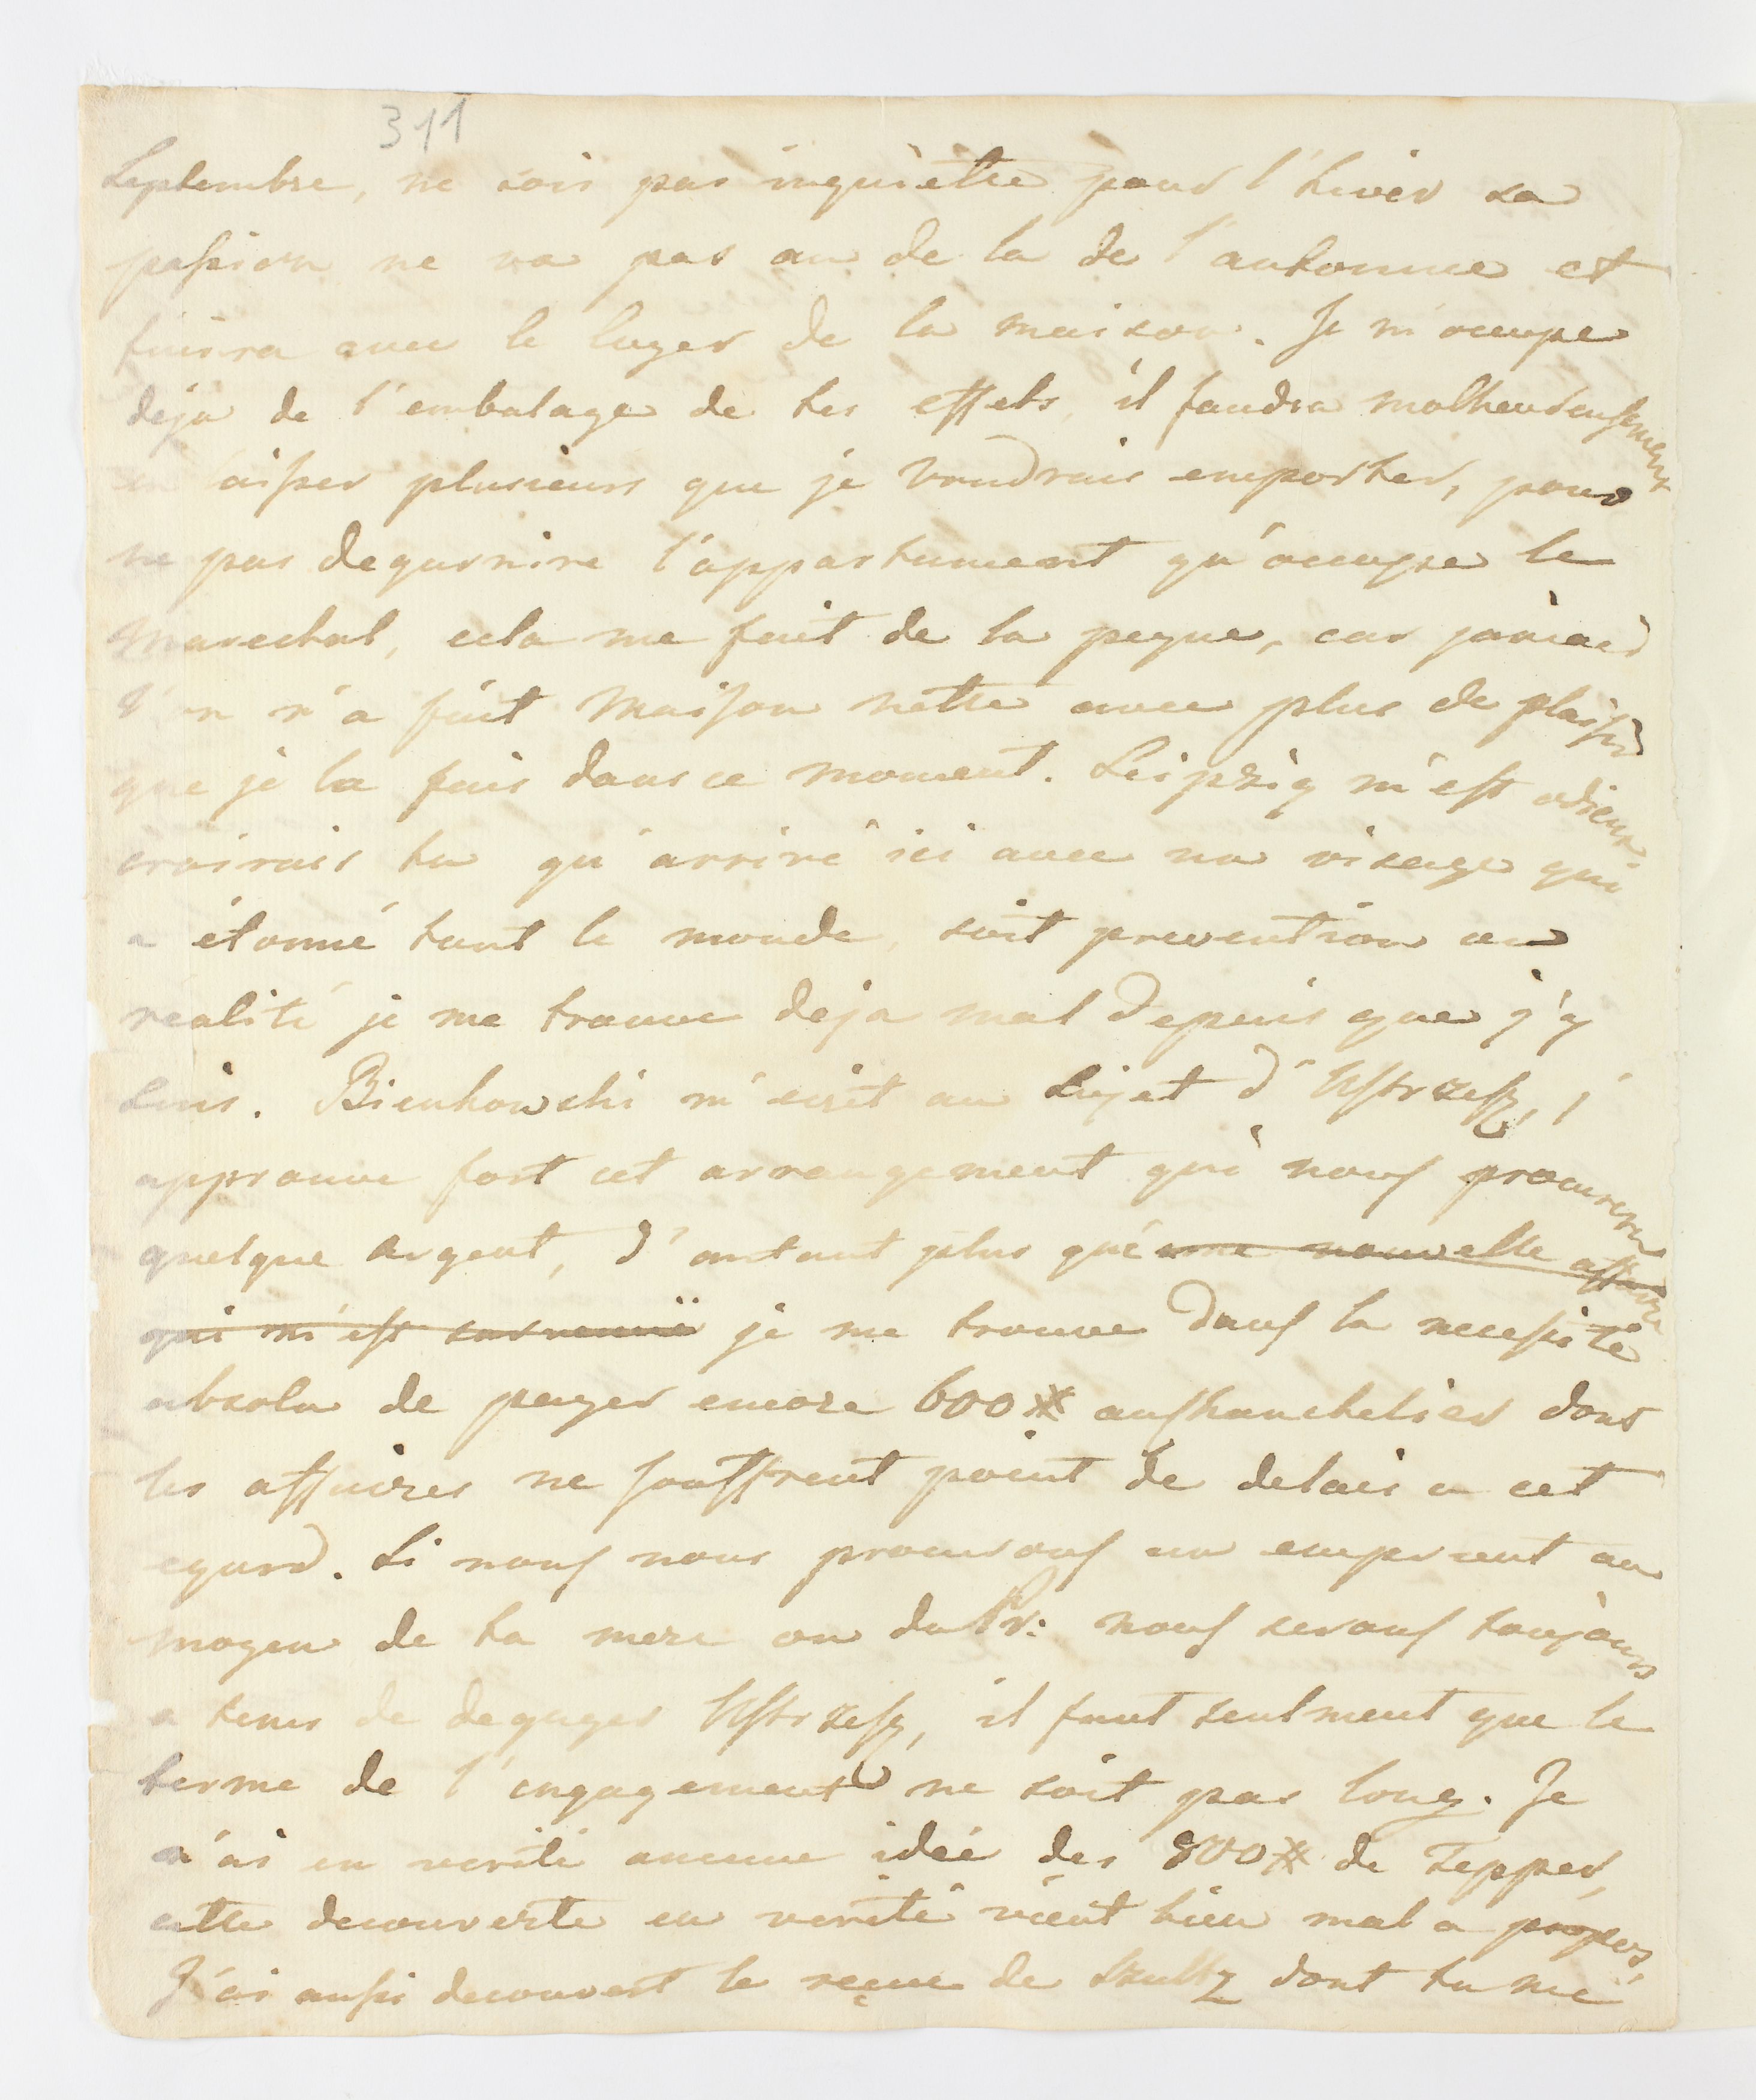 311
Septembre, ne sois pas inquiette pour l'hiver sa
passion ne va pas au de la de l'autonne et
finira avec le loyer de la maison. Je m'occupe
deja de l'embalage de tes effets, il faudra malheureusement
en laisser plusieurs que je voudrais emporter, pour
ne pas degarnire l'appartument qu'occupe le
Marechal, cela me fait de la peyne, car jamais
l'on n'a fait maison nette avec plus de plaisir
que je la fais dans ce moment. Leipzig m'est odieux.
croirais tu qu'arrivé ici avec un visage qui
a étonné tout le monde, soit prevention ou
réalité je me trouve deja mal depuis que j'y
suis. Bienkowski m'ecrit au sujet d'Ustrzesz, j'
approuve fort cet arrangement qui nous procurera
quelque argent, d'autant plus que une nouvelle affaire
qui m'est survenuë je me trouve dans la necessité
absolu de payer encore 600# au chancelier dont
les affaires ne souffrent point de delais a cet
egard. Si nous nous procurons un emprunt au
moyen de ta mere ou du Pr: nous serons toujours
a tems de degager Ustrzesz, il faut seulment que le
terme de l'engagement ne soit pas long. Je
n'ai en verité aucune idée des 800# de Tepper,
cette decouverte en verité vient bien mal a propos,
J'ai aussi decouvert le reçue de Szultz dont tu me